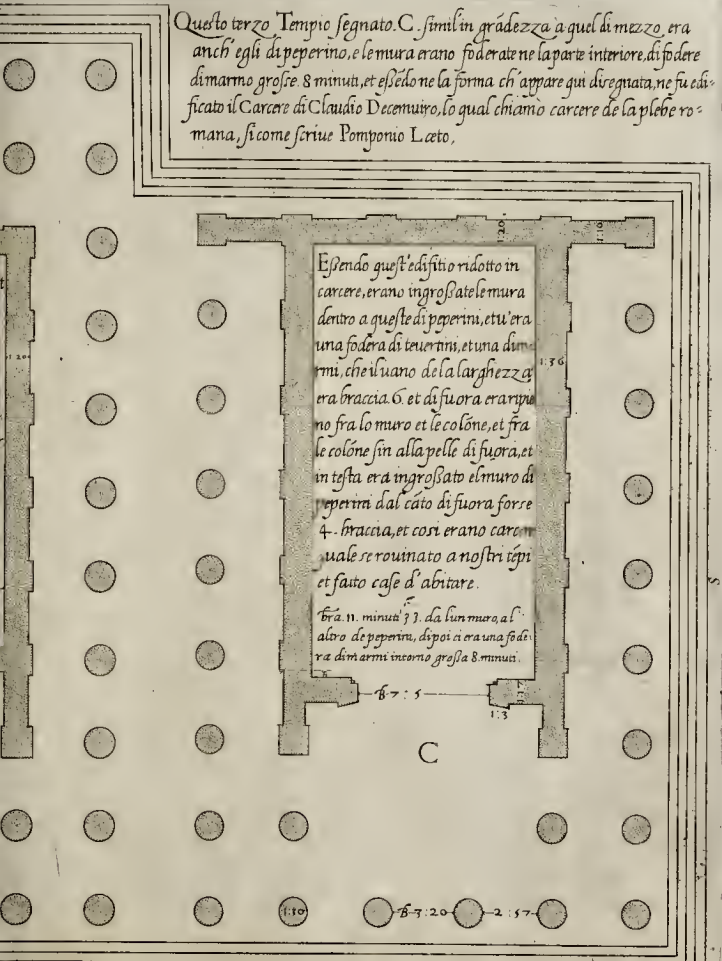 Questo terzo Tempio segnato. C. simil in grãdezza a quel di mezzo, era
anch' egli di peperino, e le mura erano foderate ne la parte interiore, di fodere
di marmo grosse. 8 minuti, et essẽdo ne la forma ch' appare qui disegnata, ne fu edi-
ficato il Carcere di Claudio Decemuiro, lo qual chiamò carcere de la plebe ro=
mana, si come scriue Pomponio Læto,
1:20.
1:10
Essendo quest' edifitio ridotto in
carcere, erano ingrossate le mura
dentro a queste di peperini, et u' era
una fodera di teuertini, et una di
rmi, che il uano de la larghezza
era braccia. 6. et di fuora era ripie
no fra lo muro et le colõne, et fra
le colõne sin alla pelle di fuora, et
in testa era ingrossato el muro di
peperini dal cãto di fuora forse
4. braccia, et cosi erano
uale se rouinato a nostri tẽpi
et fatto case d' abitare.
bra. 11. minuti 33. da lun muro, al'
altro de peperini, dipoi ci era una fode:
ra di marmi intorno grossa 8. minuti.
1:36
120
B 7 : 5
1:17
1:3
C
S
1:30
B 3:20
2 : 57